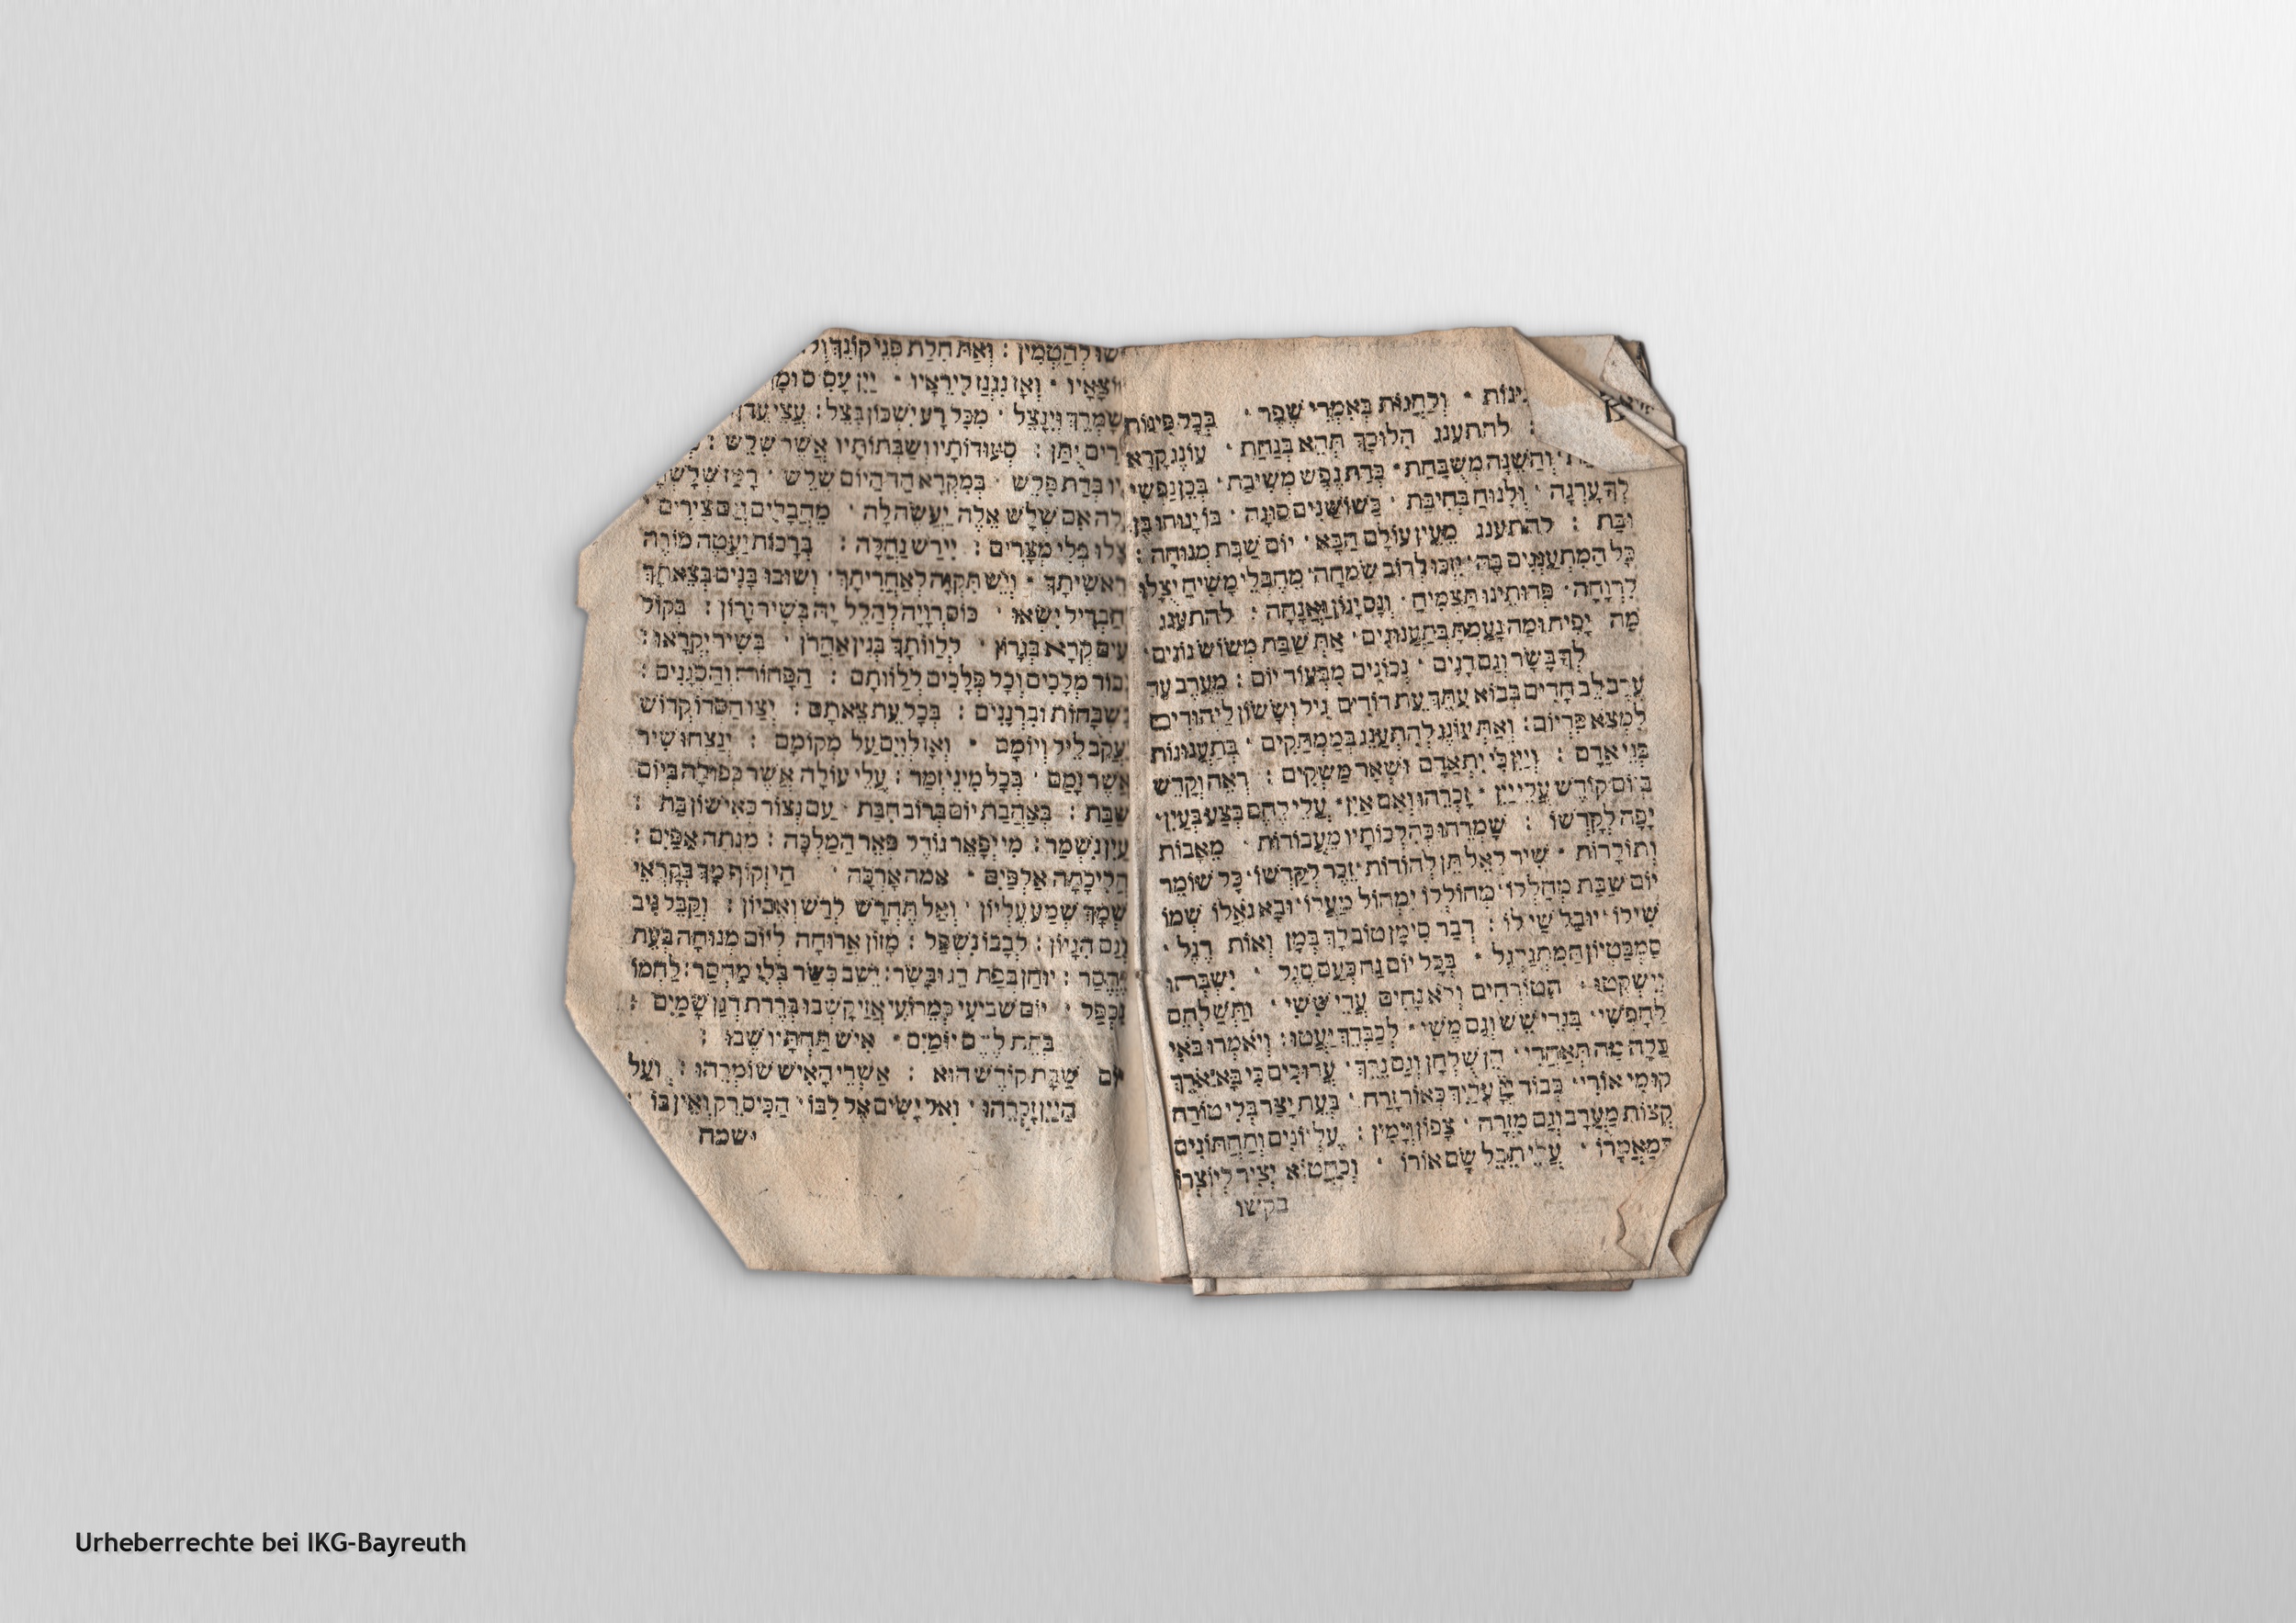 וְלַחֲנוֹת בְּאִמְרֵי שֶׁפֶר · בְּכָל פִּינוֹת
: להתענג הִלּוּכָךְ תְּהֵא בְנַחַת · עוֹנֶג קְרָא
וְהַשֵּׁנָה מְשֻׁבַּחַת · כְּדָת נֶפֶשׁ מְשִׁיבַת · בְּכֵן נַפְשִׁי
לְךָ עָרְגָה · וְלָנוּחַ בְּחִיבַּת · כְּשׁוֹשַׁנִּים סוּגָה · בּוֹ יָנוּחוּ בֵּן
וּבַת : להתענג מֵעֵין עוֹלָם הַבָּא · יוֹם שַׁבָּת מְנוּחָה :
כָּל הַמִּתְעַנְּגִים בָּהּ · יִזְכּוּ לְרוֹב שִׂמְחָה · מֵחֶבְלֵי מָשִׁיחַ יֻצָּלוּ
לִרְוָחָה · פְּדוּתֵינוּ תַּצְמִיחַ · וְנָס יָגוֹן וַאֲנָחָה : להתענג
מַה יָּפִית וּמַה נָּעַמְתְּ בְּתַעֲנוּגִים · אַתְּ שַׁבָּת מְשׂוֹשׂ נוּגִים ·
לְךָ בָּשָׂר וְגַם דָּגִים · נְכוֹנִים מִבְּעוֹד יוֹם : מֵעֶרֶב עַד
עֶרֶב לֵב חָדִים בְּבוֹא עִתֵּךְ עֵת דּוֹדִים גִּיל וְשָׂשׂוֹן לַיְּהוּדִים
לִמְצֹא פִדְיוֹם : וְאַתְּ עוֹנֶג לְהִתְעַנֵּג בְּמַמְתַקִּים · בְּתַעֲנוּגוֹת
בְּנֵי אָדָם : וְיַיִן כִּי יִתְאַדָּם וּשְׁאָר מַשְׁקִים : רְאֵה וְקַדֵּשׁ
בְּיוֹם קוֹדֶשׁ עֲלֵי יַיִן · זָכְרֵהוּ וְאִם אַיִן · עֲלֵי לֶחֶם בְּצַע בְּעַיִן ·
יָפָה לְקָדְשׁוֹ : שָׁמְרֵהוּ כְּהִלְכוֹתָיו מֵעֲבוֹדוֹת · מֵאָבוֹת
וְתוֹלָדוֹת · שִׁיר לָאֵל תֵּן לְהוֹדוֹת · זֵכֶר לְקָדְשׁוֹ · כָּל שׁוֹמֵר
יוֹם שַׁבָּת מְחַלְּלוֹ · מְחוֹלְלוֹ יִמְחוֹל מַעֲדוֹ · וּבָא גֹאֲלוֹ שְׁמוֹ
שִׁילוֹ · יוּבַל שַׁי לוֹ : דְּבַר סִימָן טוֹב לָךְ בְּמָן וְאוֹת רֶגֶל ·
סַמְבַּטְיוֹן הַמִּתְגַּלְגֵּל · בְּכָל יוֹם נָח כְּעַם סֶגֶל · יִשְׁבְּתוּ
וְיִשְׁקְטוּ · הַטּוֹרְחִים וְלֹא נָחִים עֲדֵי שִׁשִּׁי · וּתְשַׁלְּחֵם
לַחָפְשִׁי · בִּגְדֵי שֵׁשׁ וְגַם מֶשִׁי · לִכְבֹדֵךְ יַעְטוּ : וְיֹאמְרוּ בֹּאִי
כַלָּה מַה תְּאַחֲרִי · הֵן שֻׁלְחָן וְגַם נֵרֵךְ · עֲרוּכִים כִּי בָא אוֹרֵךְ
קוּמִי אוֹרִי · כְּבוֹד יְיָ עָלַיִךְ כְּאוֹר זָרַח · בְּעֵת יָצַר בְּלִי טוֹרַח
קְצוֹת מַעֲרָב וְגַם מִזְרָח · צָפוֹן וְיָמִין : עֶלְיוֹנִים וְתַחְתּוֹנִים
בְּמַאֲמָרוֹ · עֲלֵי תֵבֵל שָׂם אוֹרוֹ · וְכַחֲטֹוא יְצִיר לְיוֹצְרוֹ
בקשו
לְהַטְמִין : וְאַתְּ חִלַּת פְּנֵי קוֹנֵךְ
וְאָז נִגְנַז לִירֵאָיו · יַיִן עָסִס
וְיִנָּצֵל · מִכָּל רָע יִשְׁכּוֹן בְּצֵל : עֲצֵי עֵדֶן
יֻתַּן : סְעוּדוֹתָיו וְשַׁבְּתוֹתָיו אֲשֶׁר שִׁלֵּשׁ :
בְּמִקְרָא הַד הַיּוֹם שִׁלֵּשׁ
אִם שְׁלֹשׁ אֵלֶּה יַעֲשֶׂה לָהּ · מֵחֲבָלִים וְגַם צִירִים ·
בְּלִי מְצָרִים : יִירַשׁ נַחֲלָה : בְּרָכוֹת יַעְטֶה מוֹרֶה
רֵאשִׁיתָךְ · וְיֵשׁ תִּקְוָה לְאַחֲרִיתָךְ · וְשׁוּבוּ בָּנִים בְּצֵאתָךְ
יִשְׂאוּ · כּוֹס רְוָיָה לְהַלֵּל יָהּ בְּשִׁיר וָרוֹן : בְּקוֹל
קְרָא בְּגָרוֹן · לְלַוּוֹתָךְ בְּנִין אַהֲרֹן · בְּשִׁיר יִקְרָאוּ :
מְלָכִים וְכָל פְּלָכִים לְלַוּוֹתָם : הַפָּחוֹת וְהַסְּגָנִים :
וּבִרְנָנִים : בְּכָל עֵת צֵאתָם : יִצְוּ חַסְדּוֹ קָדוֹשׁ
עֵקֶב לֵיל וְיוֹמָם · וְאָז לְוִיִּם עַל מְקוֹמָם : יְנַצְּחוּ שִׁיר
אֲשֶׁר יָמָם · בְּכָל מִינֵי זֶמֶר : עֲלֵי עוֹלָה אֲשֶׁר כְּפוּלָה בְּיוֹם
שַׁבָּת : בְּאַהֲבַת יוֹם בְּרוֹב חִבַּת · עַם נְצוֹר כְּאִישׁוֹן בַּת :
עַיִן נִשְׁמָר : מִי יְפָאֵר גּוֹדֶל פְּאֵר הַמַּלְכָּה : מְנָתָהּ אַפַּיִם :
הֲלִיכָתָהּ אַלְפַּיִם · אַמָּה אֲרֻכָּה · הַזְקוֹף מָךְ בְּקָרְאִי
שִׁמְךָ שְׁמַע עֶלְיוֹן · וְאַל תֶּחֱרַשׁ לְרָשׁ וְאֶבְיוֹן : וְקַבֵּל נִיב
וְגַם הִגָּיוֹן : לְבָבוֹ נִשְׁפָּל : מְזוֹן אֲרוּחָה לְיוֹם מְנוּחָה בְּעֵת
יֶחְסַר : יוּחַן בְּפַת דַּג וּבָשָׂר : יֵשֵׁב כְּשַׂר בְּלִי מַחְסָר : לַחְמוֹ
נִכְפָּל · יוֹם שְׁבִיעִי כְּמֵרוֹעִי אֲזַי קָשְׁבוּ בְּרֶדֶת דְּגַן שָׁמַיִם :
בְּתֵת לֶחֶם יוֹמַיִם · אִישׁ תַּחְתָּיו שְׁבוּ :
יוֹם שַׁבָּת קוֹדֶשׁ הוּא : אַשְׁרֵי הָאִישׁ שׁוֹמְרֵהוּ : וְעַל
הַיַּיִן זָכְרֵהוּ · וְאַל יָשִׂים אֶל לִבּוֹ · הַכִּיס רֵק וְאֵין בּוֹ ·
ישמח
Urheberrechte bei IKG-Bayreuth